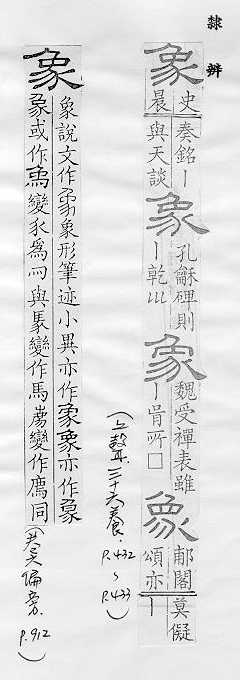 隸辨
象
史晨奏銘丨
與天談
象
孔龢碑則
丨乾巛
象
魏受禪表雖
丨肯所□
象
郙閣頌亦丨
莫儗
(上聲.三十六養.
P.432~
P.433)
象
象說文作象形筆迹小異亦作象亦作
或作變豕為與變作馬變作廌同
偏旁.
P.912)